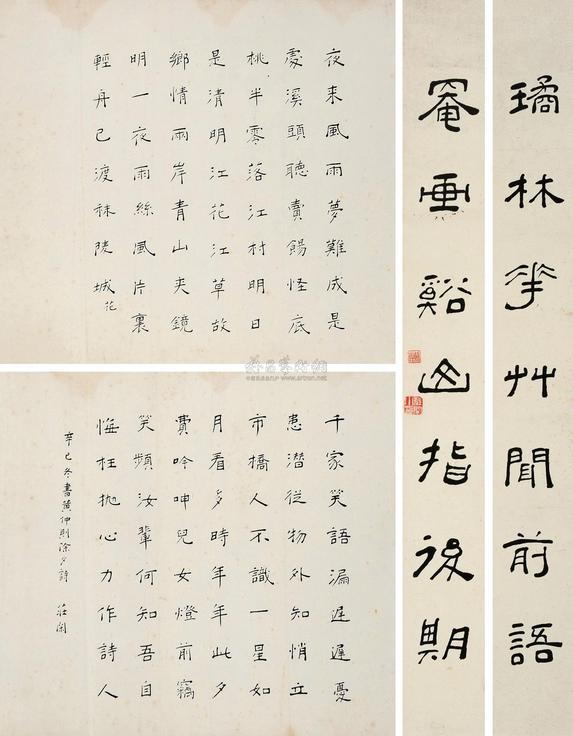 璚林華艸聞前語
罨画谿山指後期
夜来風雨夢難成是
處溪頭聽賣餳怪底
桃半零落江村明日
是清明江花江草故
鄉情兩岸青山夾鏡
明一夜雨絲風片裏
輕舟已渡秣陵城花
千家笑語漏遲遲憂
患潜從物外知悄立
市橋人不識一星如
月看多時年年此夕
費吟呻兒女燈前竊
笑頻汝輩何知吾自
悔枉抛心力作詩人
辛巳冬書黄仲則除夕詩 莊閑